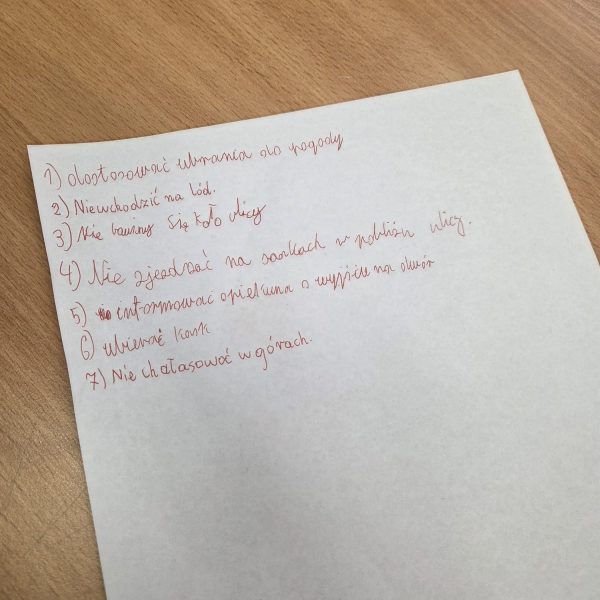 1) dostosować ubrania do pogody
2) Niewchodzić na lód.
3) Nie bawimy się koło ulicy
4) Nie zjezdzać na sankach w pobliżu ulicy.
5) informować opiekuna o wyjściu na dwór
6) ubierać kask
7) Nie chałasować w górach.